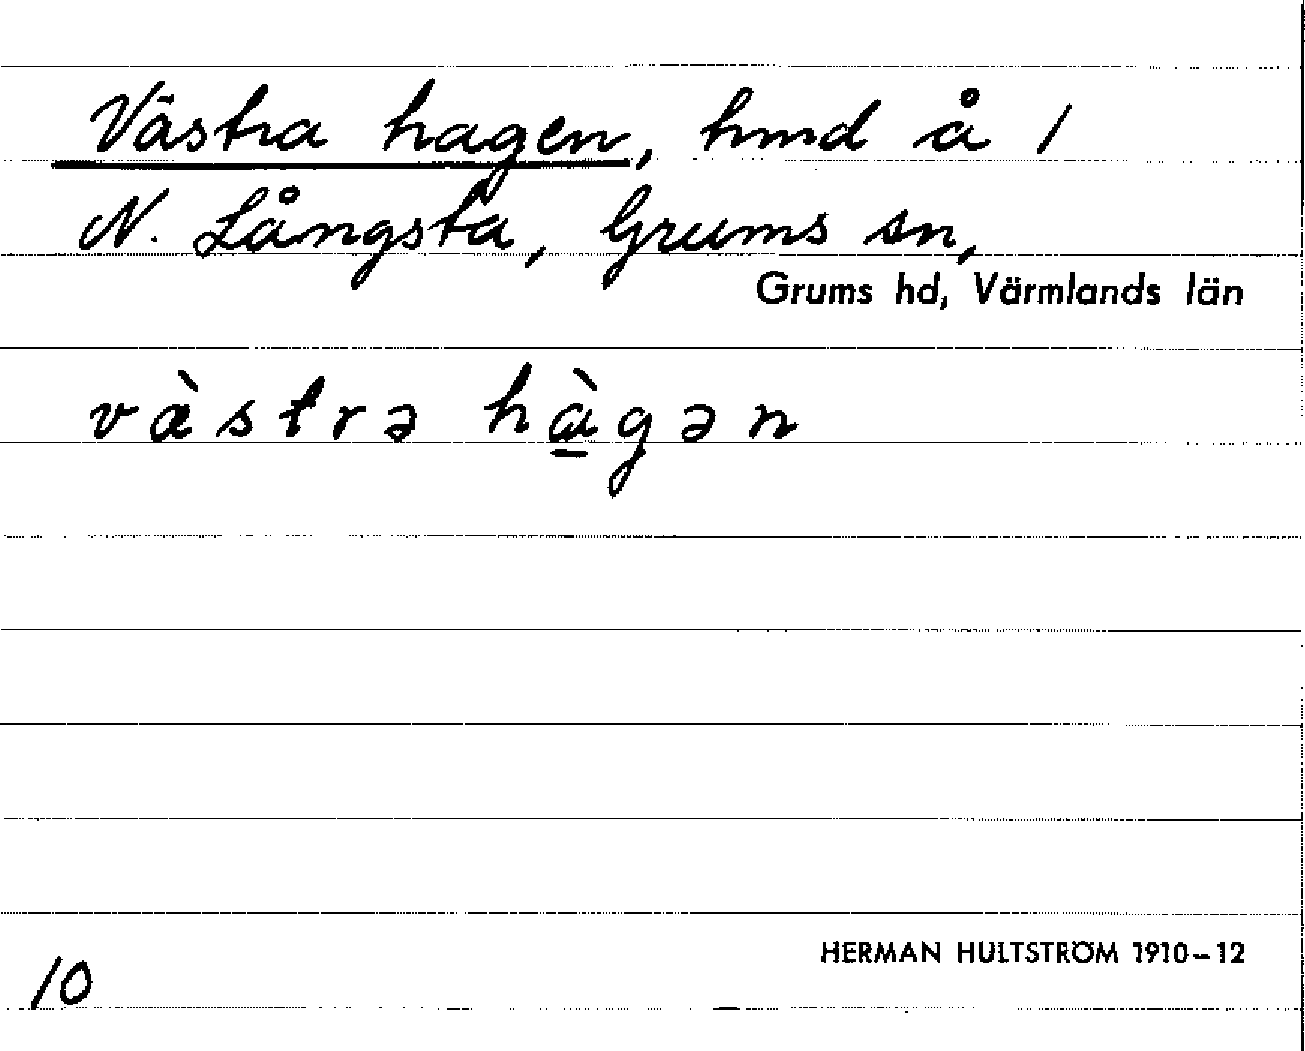 Västra hagen, hmd å 1
N. Långsta, Grums sn,
Grums hd, Värmlands län
væ̀strə hɑ̠̀gən
HERMAN HULTSTRÖM 1910–12
10